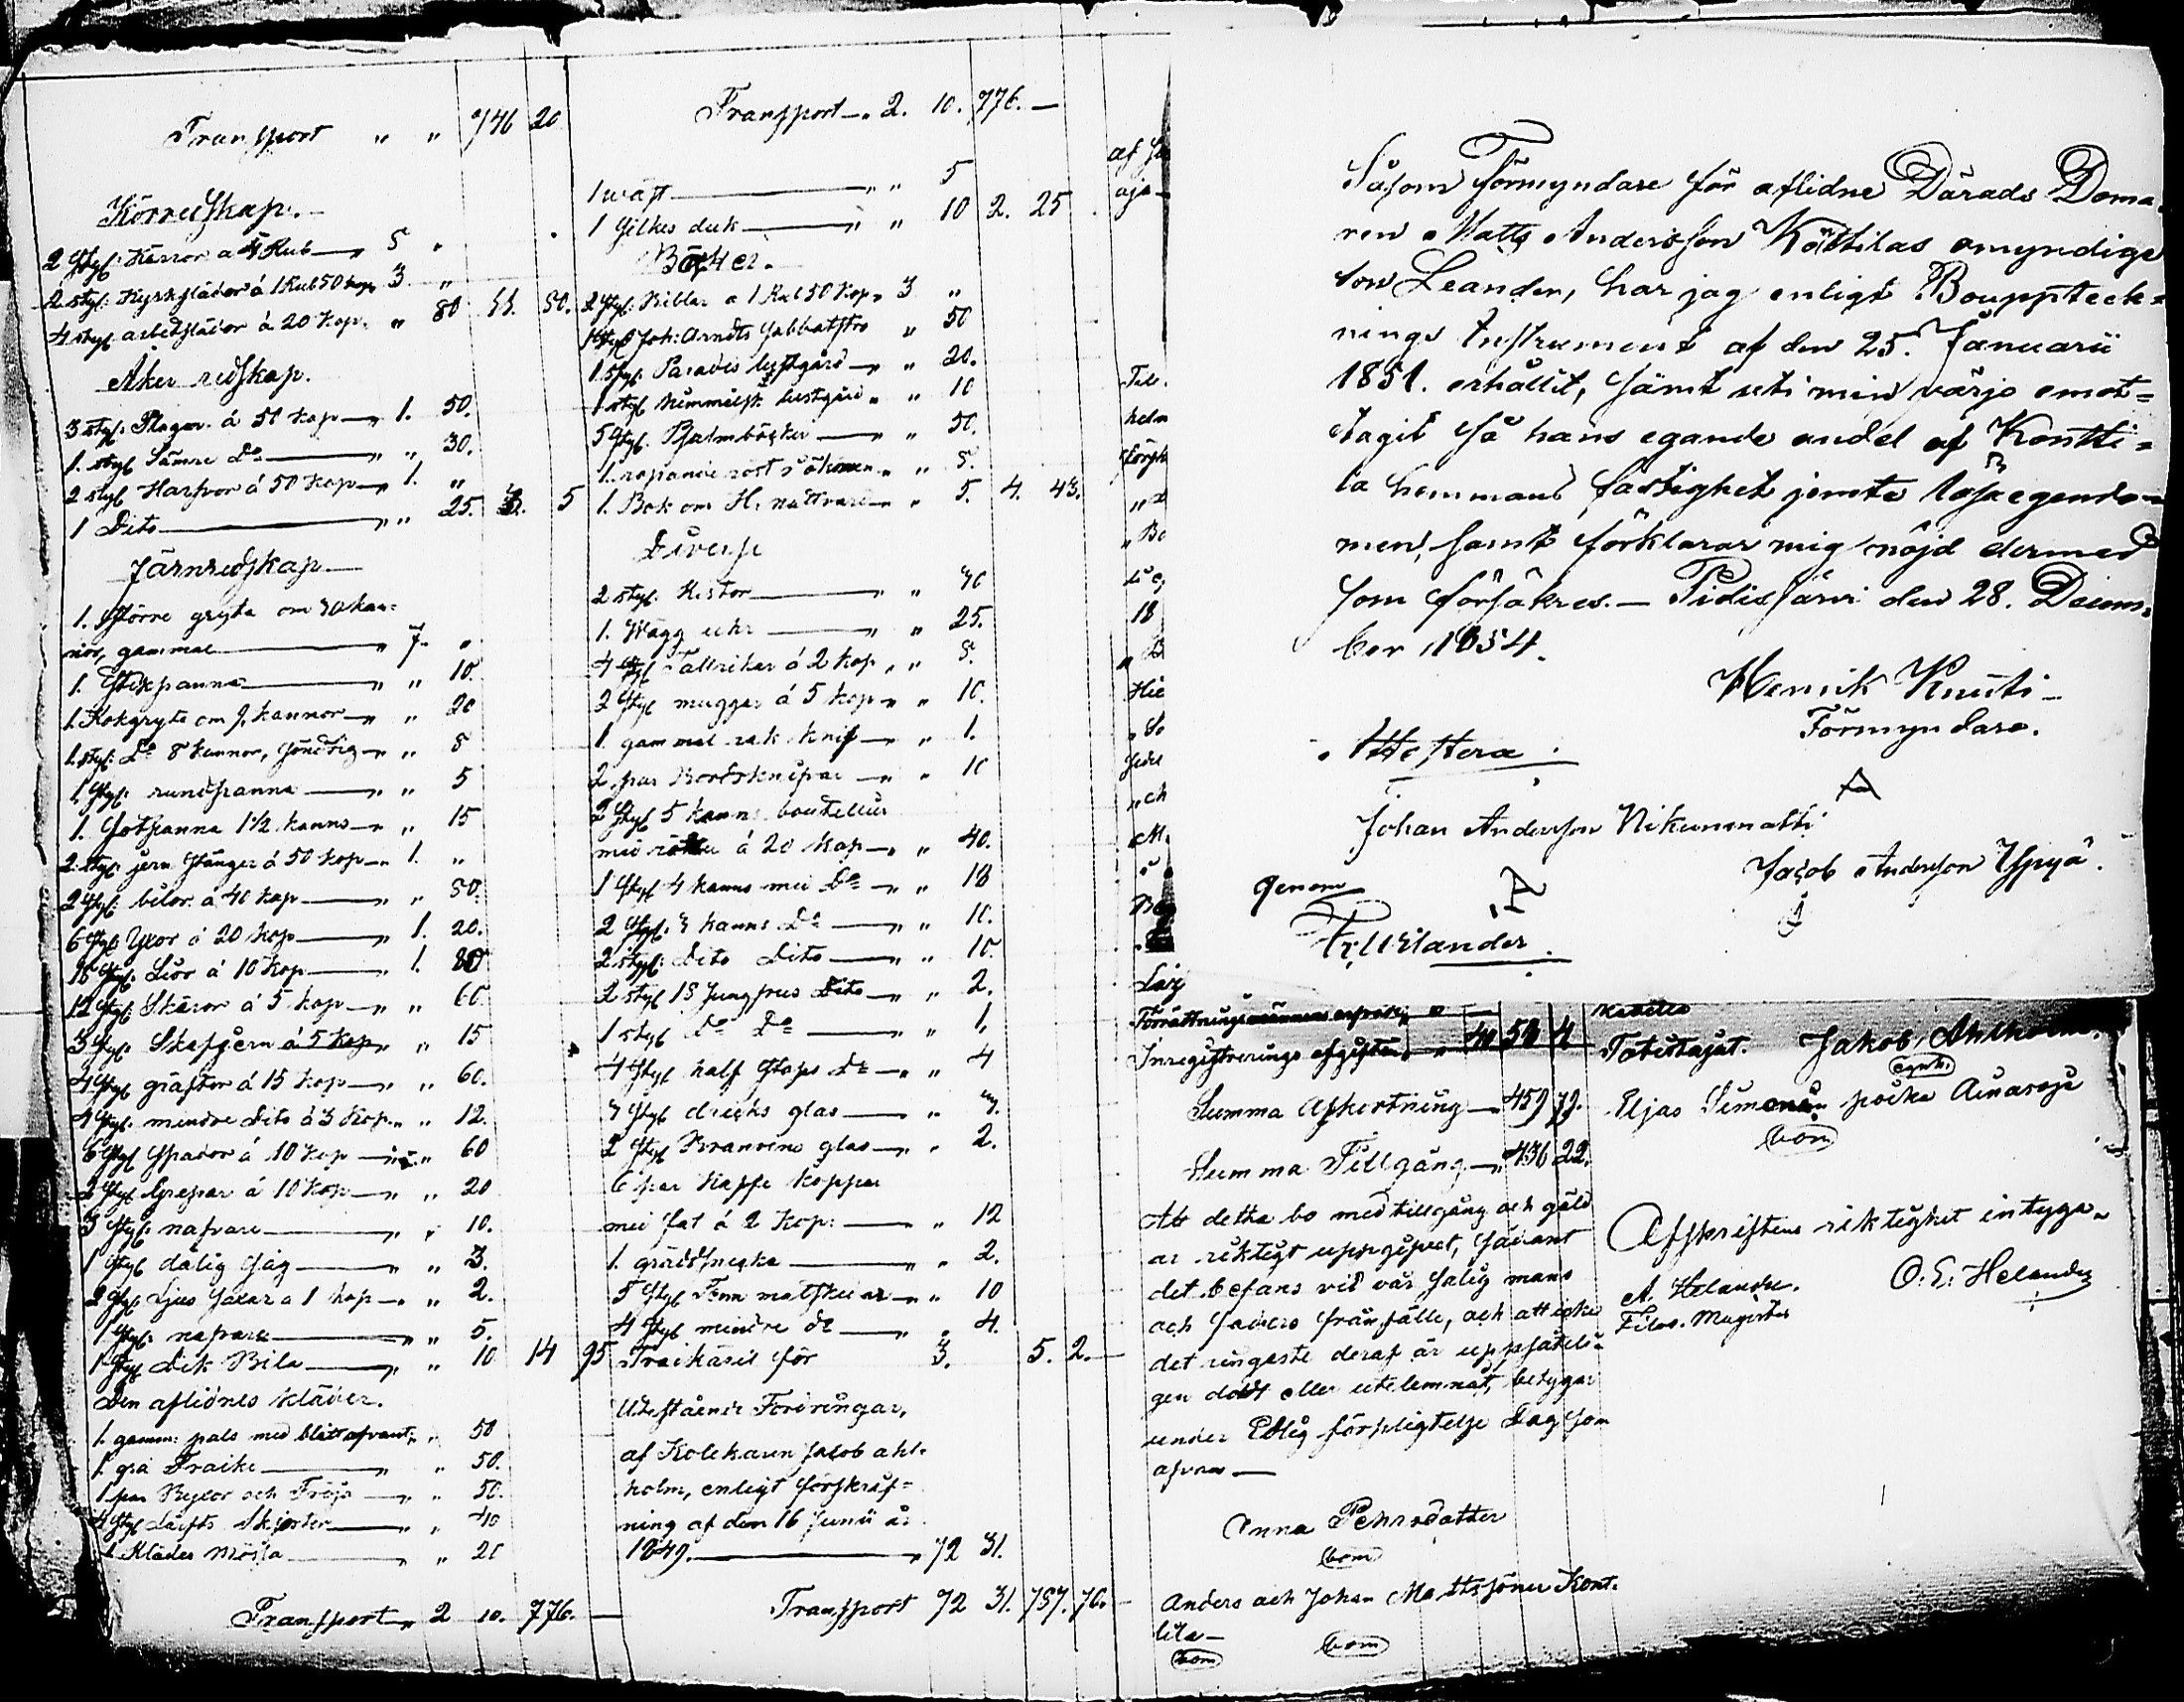 Transport " " 746 20
Körredskap.
2 styf: Kärror a 4 Rub — " 5 "
2 styf: Kyrkslädor á 1 Rub 50 kop " 3 "
4 styf arbetslädor à 20 Kop. " 80 11. 80.
Åker redskap.
3 styf: Plogar á 50 kop — " 1. 50.
1. styf Sämre Do — " " 30.
2 styf Harfvor á 50 kop — " 1. "
1 Dito — " " 25. 3. 5
Järnredskap —
1. Större gryta om 30 kan-
nor, gammal — " 7. "
1. Stekpanna — " " 10.
1. Kokgryta om 9. kannor — " " 20
1. styf: Do 8 kannor, söndrig — " " 8
1 styf: rundpanna — " " 5
1. Gotpanna 1½ kanns — " " 15
2: styf: jern stänger á 50 kop — " 1. "
2 styf: bilor a 40 kop — " " 80.
6 styf: Yxor á 20 kop — " 1. 20.
18 styf: Liör á 10 Kop — " 1. 80
12 styf: Skäror á 5 kop — " " 60.
3 styf: Skafjern á 5 kop " " 15
4 styf gräftor á 15 kop — " " 60.
4 styf. mindre Dito á 3 Kop. " " 12.
6 styf Spador á 10 kop — " " 60
2 styf Grepar á 10 Kop — " " 20
3 styf: nafvare — " " 10.
1 styf dålig såg — " " 3.
2 styf: Ljus saxar a 1 kop — " " 2.
1 styf: nafvare — " " 5.
1 styf Dik Bila — " " 10 14 95
Den aflidnes kläder.
1. gamm: pals med blått öfvant: " 50
1. grå Traike — " " 50.
1 par Byxor och Tröja — " " 50.
4 styf Lärfts Skjortor — " " 40
1 Klädes Mössa — " " 20
Transport — " 2 10. 776. —
Transport — " 2. 10. 776. —
1 wäst — " " 5
1 silkes duk — " " 10 2. 25
Böcker.
2 styf: Biblar a 1 Rub 50 kop " 3 "
1 styf Joh: Arndts Sabbatstro " 50
1 styf: Paradis lustgård — " " 20.
1 styf himmelsk lustgård " " 10
5 styf. Psalmböcker — " " 50.
1. ropande röst i öknen " " 8.
1. Bok om H. nattvard — " " 5. 4. 43.
Diverse
2 styf: Kistor — " " 40
1. Wägg uhr — " " 25.
4 styf Tallrikar á 2 kop " " 8.
2 styf muggar á 5 kop " " 10.
1. gammal rak knif — " " 1.
2 par Bordsknifvar — " " 10
2 styf 5 kanns boutellier
med rötter á 20 kop — " " 40.
1 styf 4 kanns med Do — " " 18
2 styf: 3 kanns Do — " " 10.
2 styf: Dito Dito — " " 10.
2 styf 18 Jungfrus Dito — " " 2.
1 styf Do Do — " " 1.
4 styf half stops Do — " " 4
3 styf dricks glas — " " 3.
2 styf Branvins glas — " " 2.
6 par Kaffe koppar
med fat á 2 kop: — " 12
1. gräddsnecka — " " 2.
5 styf Tenn matskedar — " " 10
4 styf mindre do — " " 4.
Traikäril för 3. 5. 2. —
Utestående Fordringar,
af Kolckaren Jacob ahl-
holm, enligt förskrif-
ning af den 16 Junii år
1849. — " 72 31.
Transport 72 31. 787. 76. —
Såsom Förmyndare för aflidne Därads Doma-
ren Matts Andersson Köttilas omyndige
son Leander, har jag enligt Bouppteck-
nings Instrument af den 25. Januarii
1851. erhållit, samt uti min värjo emot-
tagit så hans egande andel af Kontti-
la hemmans fastighet jemte lösegendo-
men, samt förklarar mig nöjd dermed
som försäkras. — Pidisjärvi den 28. Decem-
ber 1854.
Henrik Knuti —
Förmyndare.
Attestera
Johan Andersson Nikunmatti
Jacob Andersson Yppyä.
genom
Fr. Welander.
Förrättningsmännens arfvode " " —
Inregistrerings afgiften " " 40 58 4
Summa Afkortning — 459 79.
Summa Tillgång — " 436 22.
Att detta bo med tillgång och gäld
är riktigt uppgifvet, sådant
det befans vid vår salig mans
och faders frånfälle, och att icke
det ringaste deraf är uppsåteli-
gen doldt eller utelemnat, betygar
under Edlig förpligtelse Dag som
ofvan —
Anna Pehrsdotter
bom
Anders och Johan Mattssöner Kont-
tila —
bom
bom
Todistajat. Jakob Ahlholm.
Eljas Simonan poika Ainasoja
bom
Afskriftens riktighet intyga
A. Helander. O. E. Helander
Filos. Magister